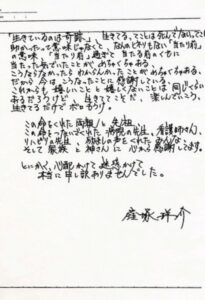 「生きているのは奇跡」、生きてる、てことは死んでない、てこと。
助かったって意味じゃなく、なんのへんてつもない「当たり前」
の意味。「当たり前」過ぎて当たる前のぐちに
当たった気でいたことがめちゃくちゃある。
こうならなかったらわからんかったことがめちゃくちゃある、
だから今は、こうなったことに感謝している。
これからも嬉しいことと嬉しくないことは同じくらい
あるだろうけど、生きててこそだ、楽しんでいこう、
生きてるだけでボロもうけ。
この命をくれた両親と先祖、
この命をつないでくれた病院の先生、看護婦さん、
リハビリの先生、励ましの声をくれたみんな、
そして家族と神さんに心から感謝してます。
とにかく、心配かけて迷惑かけて
本当に申し訳ありませんでした。
窪塚洋介